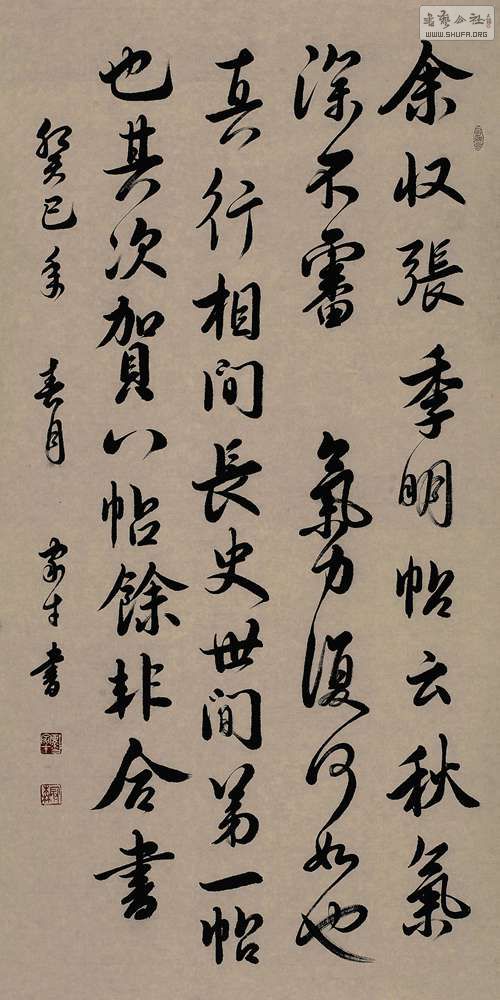 余収張季明帖云秋氣
深不審 氣力復何如也
真行相間長史世間第一帖
也其次賀八帖餘非合書
癸巳年 春月 書
書藝公社
WWW.SHUFA.ORG